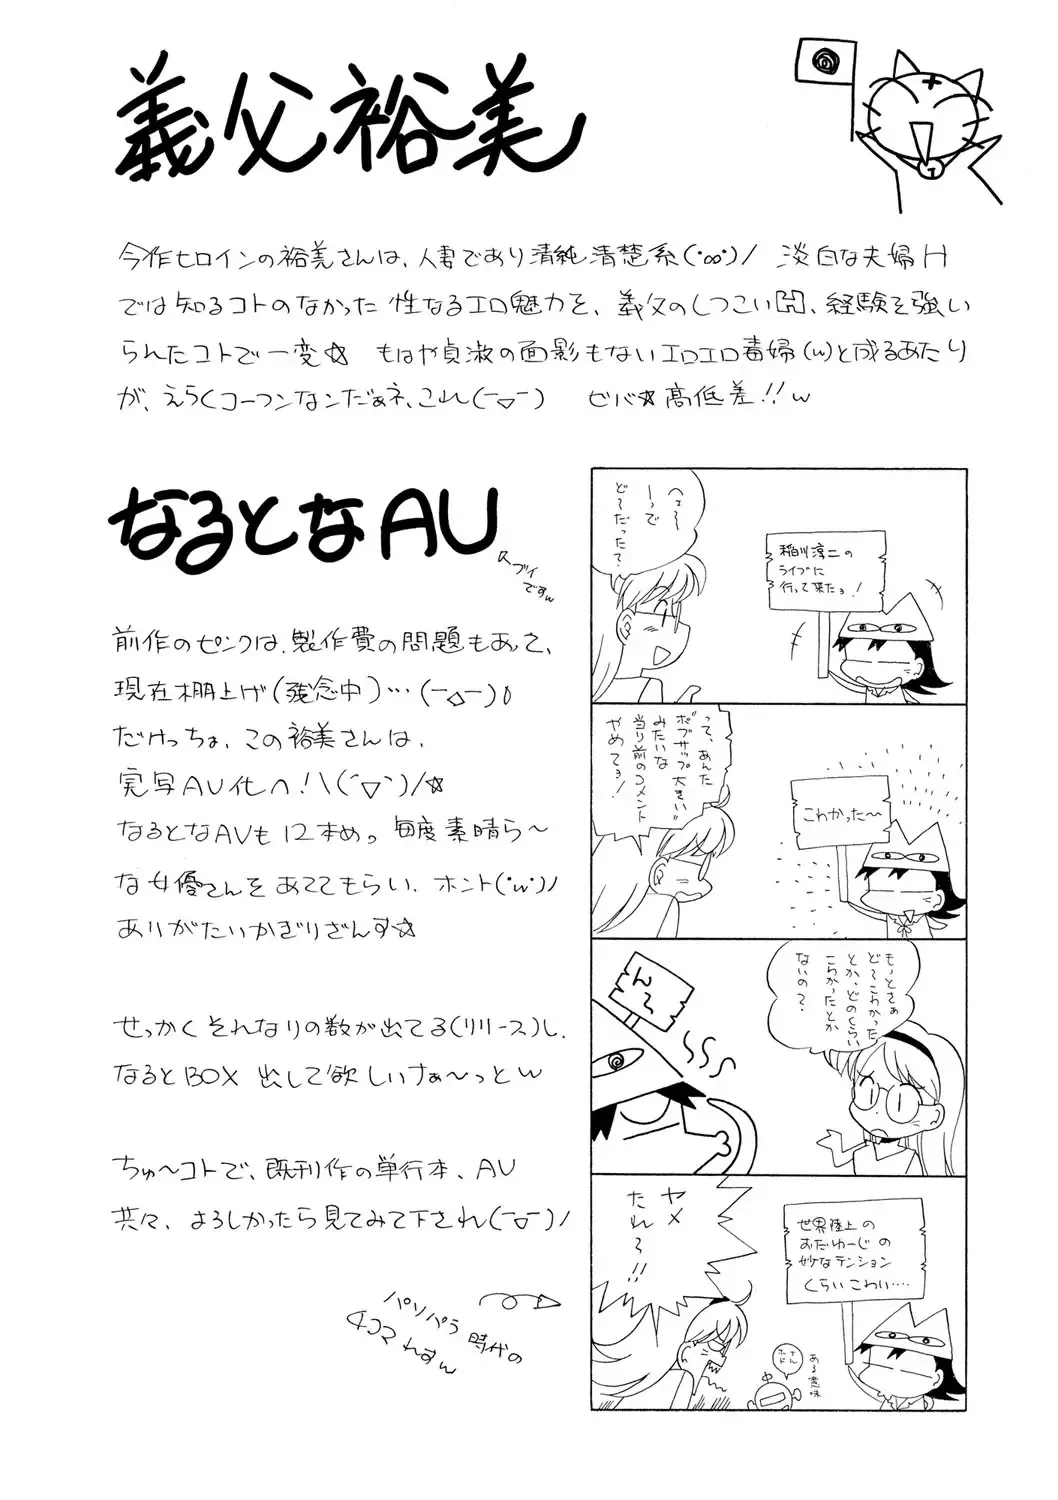 義父裕美
今作ヒロインの裕美さんは、人妻であり清純清楚系(・∞・)/ 淡白な夫婦H
では知るコトのなかった 性なるエロ魅力を、義父のしつこい 経験を強い
られたコトで一変☆ もはや貞淑の面影もないエロエロ毒婦(w)と成るあたり
が、えらくコーフンなンだぁネ、これ(ー▽ー) ビバ☆高低差!!w
なるとなAV
スブイ
ですw
前作のピンクは、製作費の問題もあって、
現在棚上げ(残念中)…(ー△ー)
だけっちょ、この裕美さんは、
実写AV化へ!\(´▽`)/☆
なるとなAVも12本めっ 毎度素晴ら〜
な女優さんをあててもらい、ホント(・w・)ノ
ありがたいかぎりざんす☆
せっかくそれなりの数が出てる(リリース)し、
なるとBOX 出して欲しいけぁ〜っとw
ちゅ〜コトで、既刊作の単行本、AV
共々、よろしかったら見てみて下され(ー▽ー)ノ
パソパラ時代の
4コマ れすw
へぇ〜
ーっで
ど〜だった?
稲川淳二の
ライブに
行って来たョ!
って、あんた
ボブサップ大きい"
みたいな
当り前のコメント
やめてョ!
こわかった〜
もっとさぁ
ど〜こわかった
とか、どのくらい
こわかったとか
ないの?
ん〜
ヤメ
たれ〜!!
世界陸上の
おだゆーじの
妙なテンション
くらいこわい‥‥
ある意味